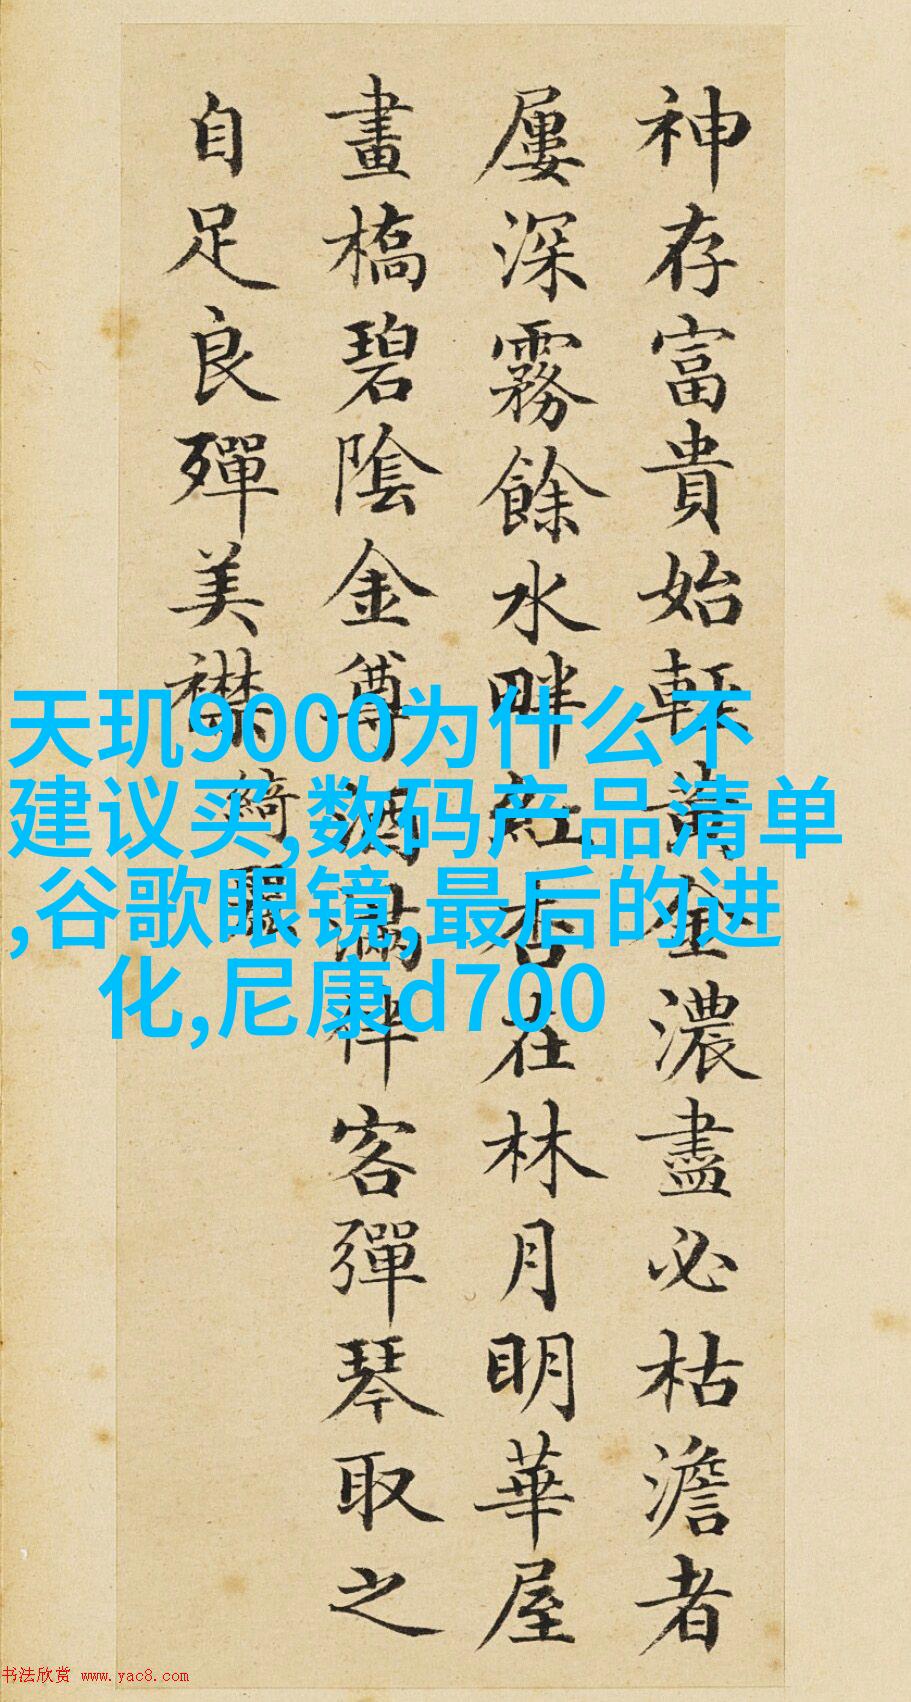 神存富貴始輕黃金濃盡必枯澹者
屢深霧餘水畔紅杏在林月明華屋
畫橋碧陰金尊酒滿伴客彈琴取之
自足良殫美襟
綺
天玑9000为什么不
建议买,数码产品清单
,谷歌眼镜,最后的进
化,尼康d700
书法欣赏 www.yac8.com